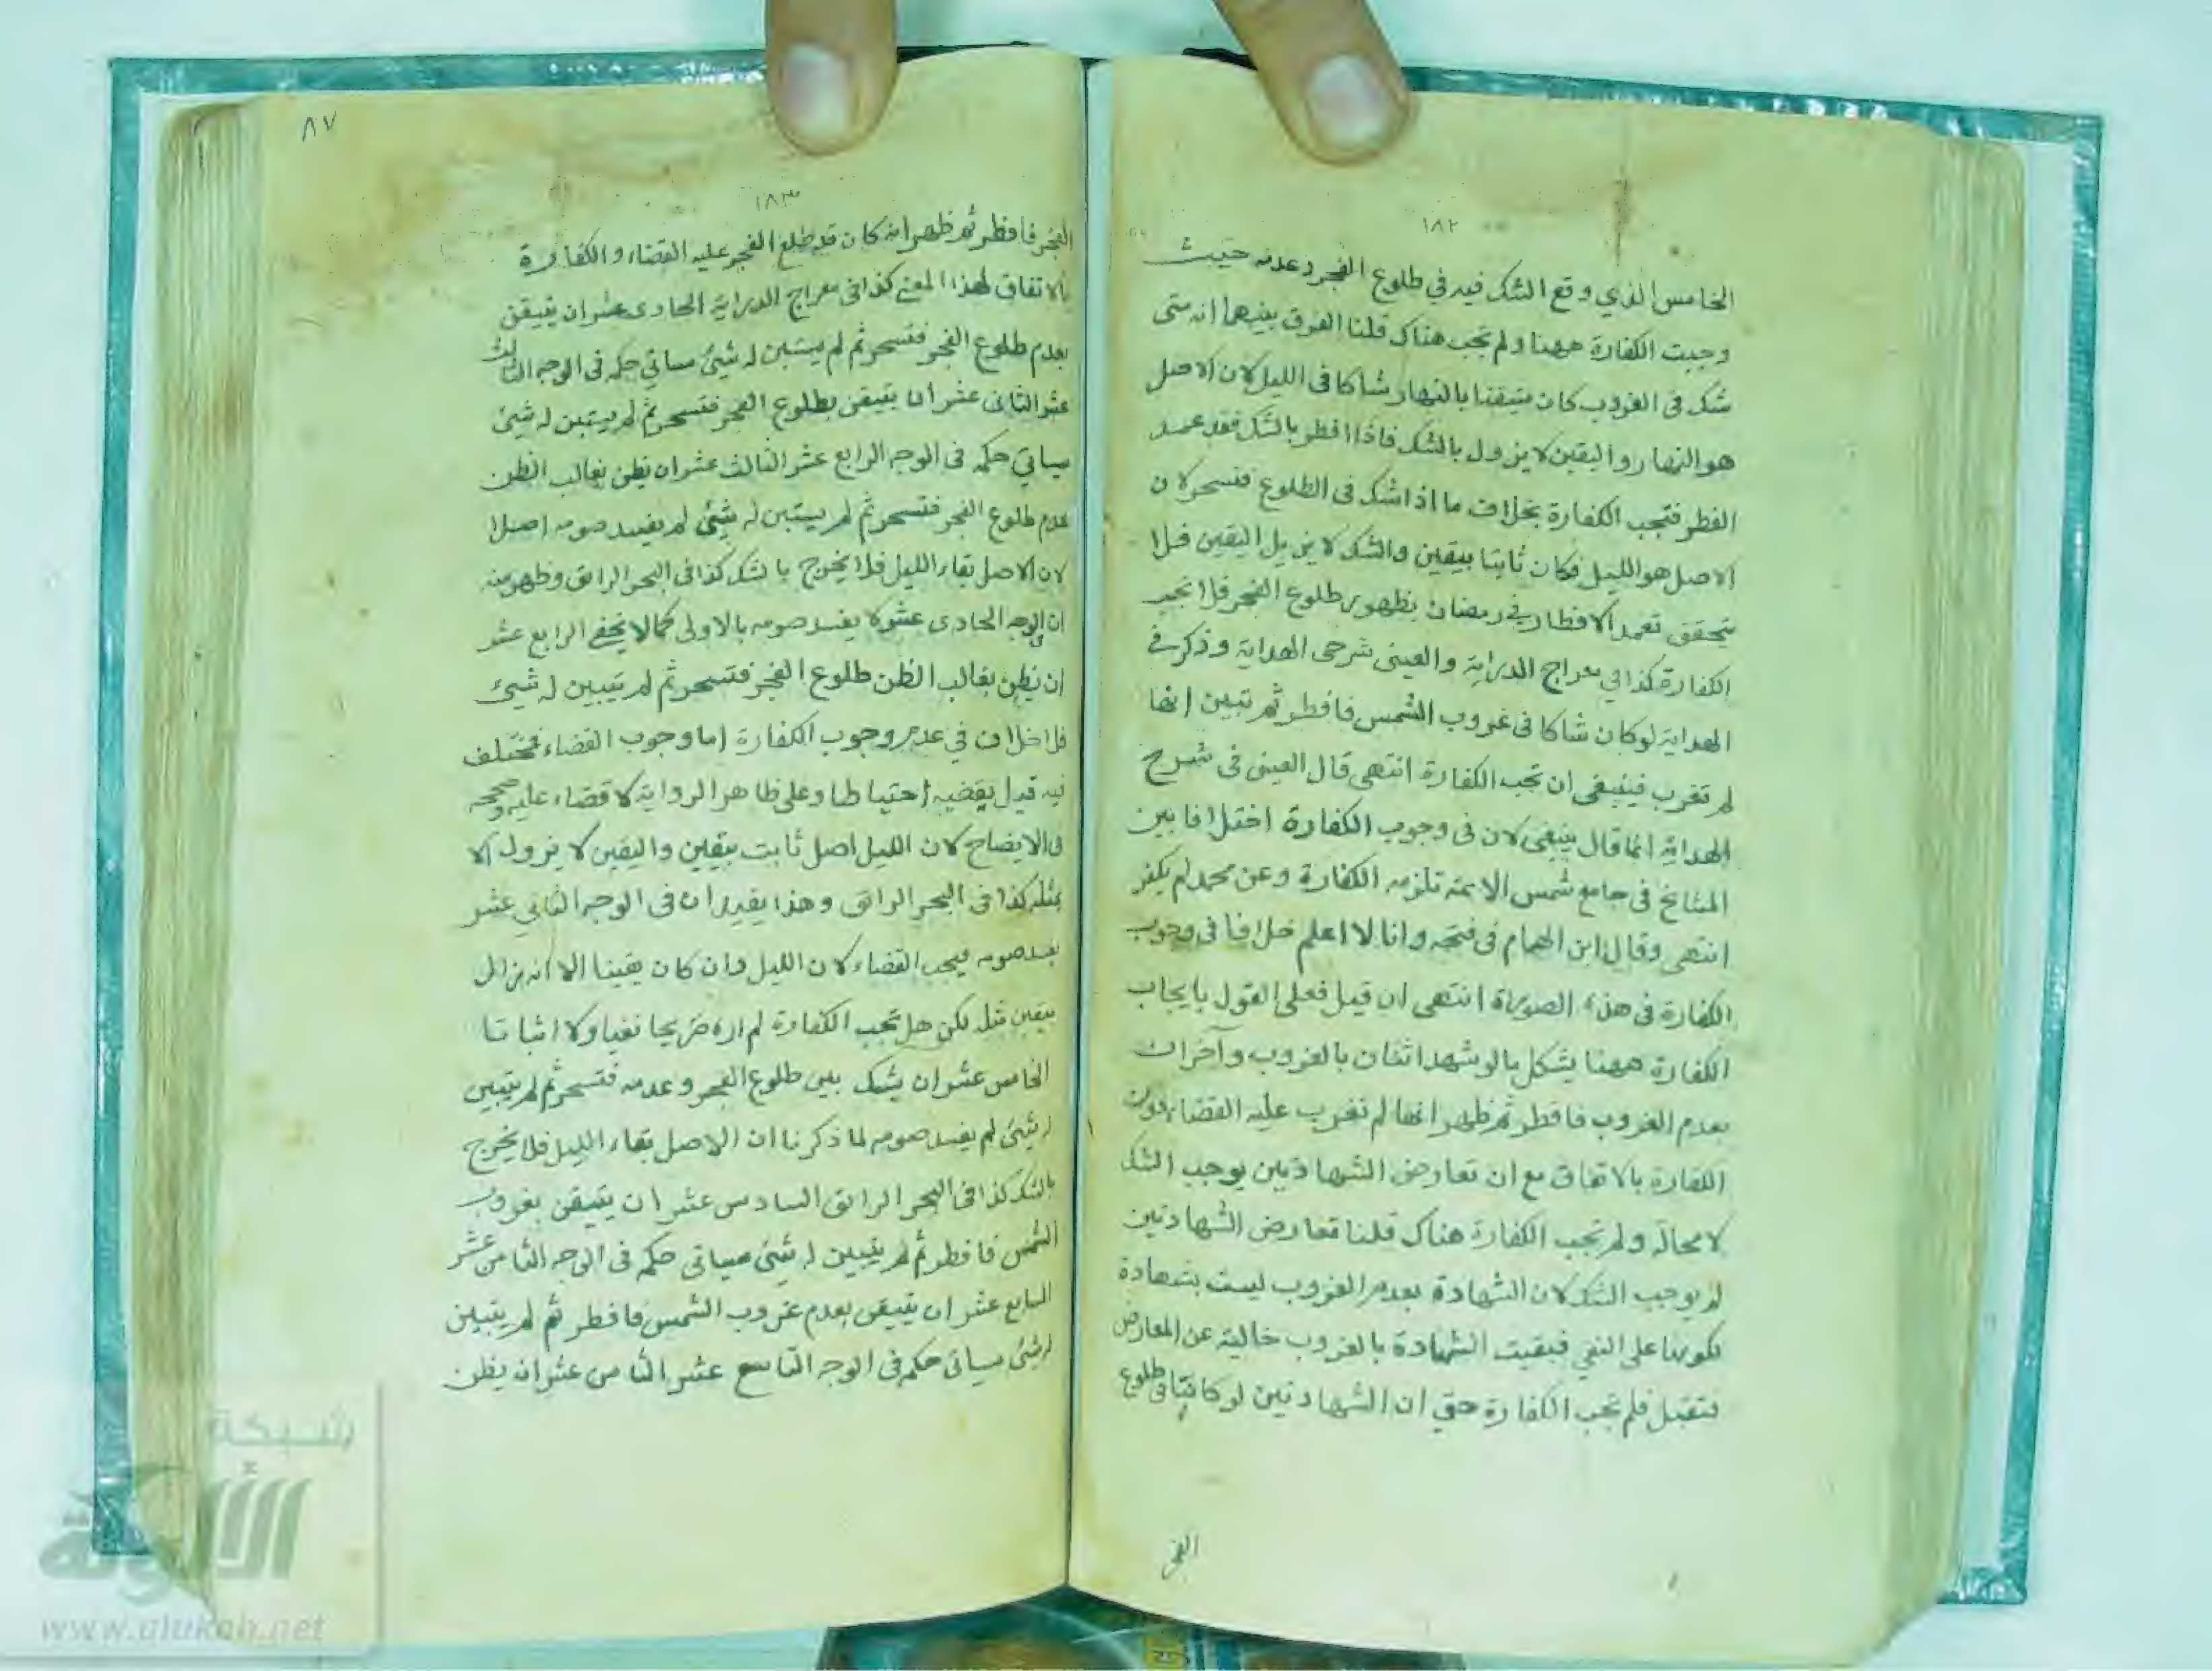 ١٨٢
الخامس الذي وقع الشك فيه في طلوع الفجر وعدمه حيث
وجبت الكفارة ههنا ولم تجب هناك قلنا الفرق بينهما انه متى
شك في الغروب كان متيقنا بالنهار شاكا في الليل لان الاصل
هو النهار واليقين لا يزول بالشك فاذا افطر بالشك فقد عمد
الفطر فتجب الكفارة بخلاف ما اذا شك في الطلوع فتسحر لان
الاصل هو الليل فكان ثابتا بيقين والشك لا يزيل اليقين فلا
يتحقق تعمد الافطار في رمضان بظهور طلوع الفجر فلا تجب
الكفارة كذا في معراج الدراية والعيني شرحى الهداية وذكر في
الهداية لو كان شاكا في غروب الشمس فافطر ثم تبين انها
لم تغرب فينبغي ان تجب الكفارة انتهى قال العيني في شرح
الهداية انما قال ينبغي لان في وجوب الكفارة اختلافا بين
المشايخ في جامع شمس الايمة تلزمه الكفارة وعن محمد لم يكفر
انتهى وقال ابن الهمام في فتحه وانا لا اعلم خلافا في وجوب
الكفارة في هذه الصورة انتهى ان قيل فعلى القول بايجاب
الكفارة ههنا يشكل بما لو شهد اثنان بالغروب وآخران
بعدم الغروب فافطر ثم ظهر انها لم تغرب عليه القضاء دون
الكفارة بالاتفاق مع ان تعارض الشهادتين يوجب الشك
لا محالة ولم تجب الكفارة هناك قلنا تعارض الشهادتين
لم يوجب الشك لان الشهادة بعدم الغروب ليست بشهادة
لكونها على النفي فبقيت الشهادة بالغروب خالية عن المعارض
فتقبل فلم تجب الكفارة حتى ان الشهادتين لو كانتا في طلوع
الفجر
٨٧
١٨٣
الفجر فافطر ثم ظهر انه كان قد طلع الفجر عليه القضاء والكفارة
بالاتفاق لهذا المعنى كذا في معراج الدراية الحادى عشر ان يتيقن
بعدم طلوع الفجر فتسحر ثم لم يستبن له شيئ سياتي حكمه في الوجه الثالث
عشر الثانى عشر ان يتيقن بطلوع الفجر فتسحر ثم لم يستبن له شيئ
سياتي حكمه في الوجه الرابع عشر الثالث عشر ان يظن بغالب الظن
عدم طلوع الفجر فتسحر ثم لم يستبن له شيئ لم يفسد صومه اصلا
لان الاصل بقاء الليل فلا يخرج بالشك كذا في البحر الرائق وظهر منه
ان الوجه الحادى عشر لا يفسد صومه بالاولى كما لا يخفى الرابع عشر
ان يظن بغالب الظن طلوع الفجر فتسحر ثم لم يتبين له شيئ
فلا خلاف في عدم وجوب الكفارة اما وجوب القضاء فمختلف
فيه قيل يقضيه احتياطا وعلى ظاهر الرواية لا قضاء عليه وصححه
في الايضاح لان الليل اصل ثابت بيقين واليقين لا يزول الا
بمثله كذا في البحر الرائق وهذا يفيد ان في الوجه الثاني عشر
يفسد صومه فيجب القضاء لان الليل وان كان يقينا الا انه زال
بيقين مثله لكن هل تجب الكفارة لم اره صريحا نفيا ولا اثباتا
الخامس عشر ان يشك بين طلوع الفجر وعدمه فتسحر ثم لم يتبين
له شيئ لم يفسد صومه لما ذكرنا ان الاصل بقاء الليل فلا يخرج
بالشك كذا في البحر الرائق السادس عشر ان يتيقن بغروب
الشمس فافطر ثم لم يتبين له شيئ سياتى حكمه في الوجه الثامن عشر
السابع عشر ان يتيقن بعدم غروب الشمس فافطر ثم لم يتبين
له شيئ سياتى حكمه في الوجه التاسع عشر الثامن عشر ان يظن
شبكة
الألوكة
www.alukah.net